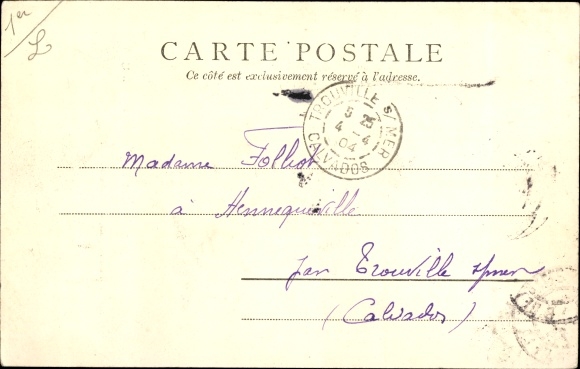 1er
CARTE POSTALE
Ce côté est exclusivement réservé à l'adresse.
TROUVILLE S/ MER
5 25
4 - 4
04
CALVADOS
Madame Folliot
à Hennequeville
par Trouville s/mer
(Calvados)